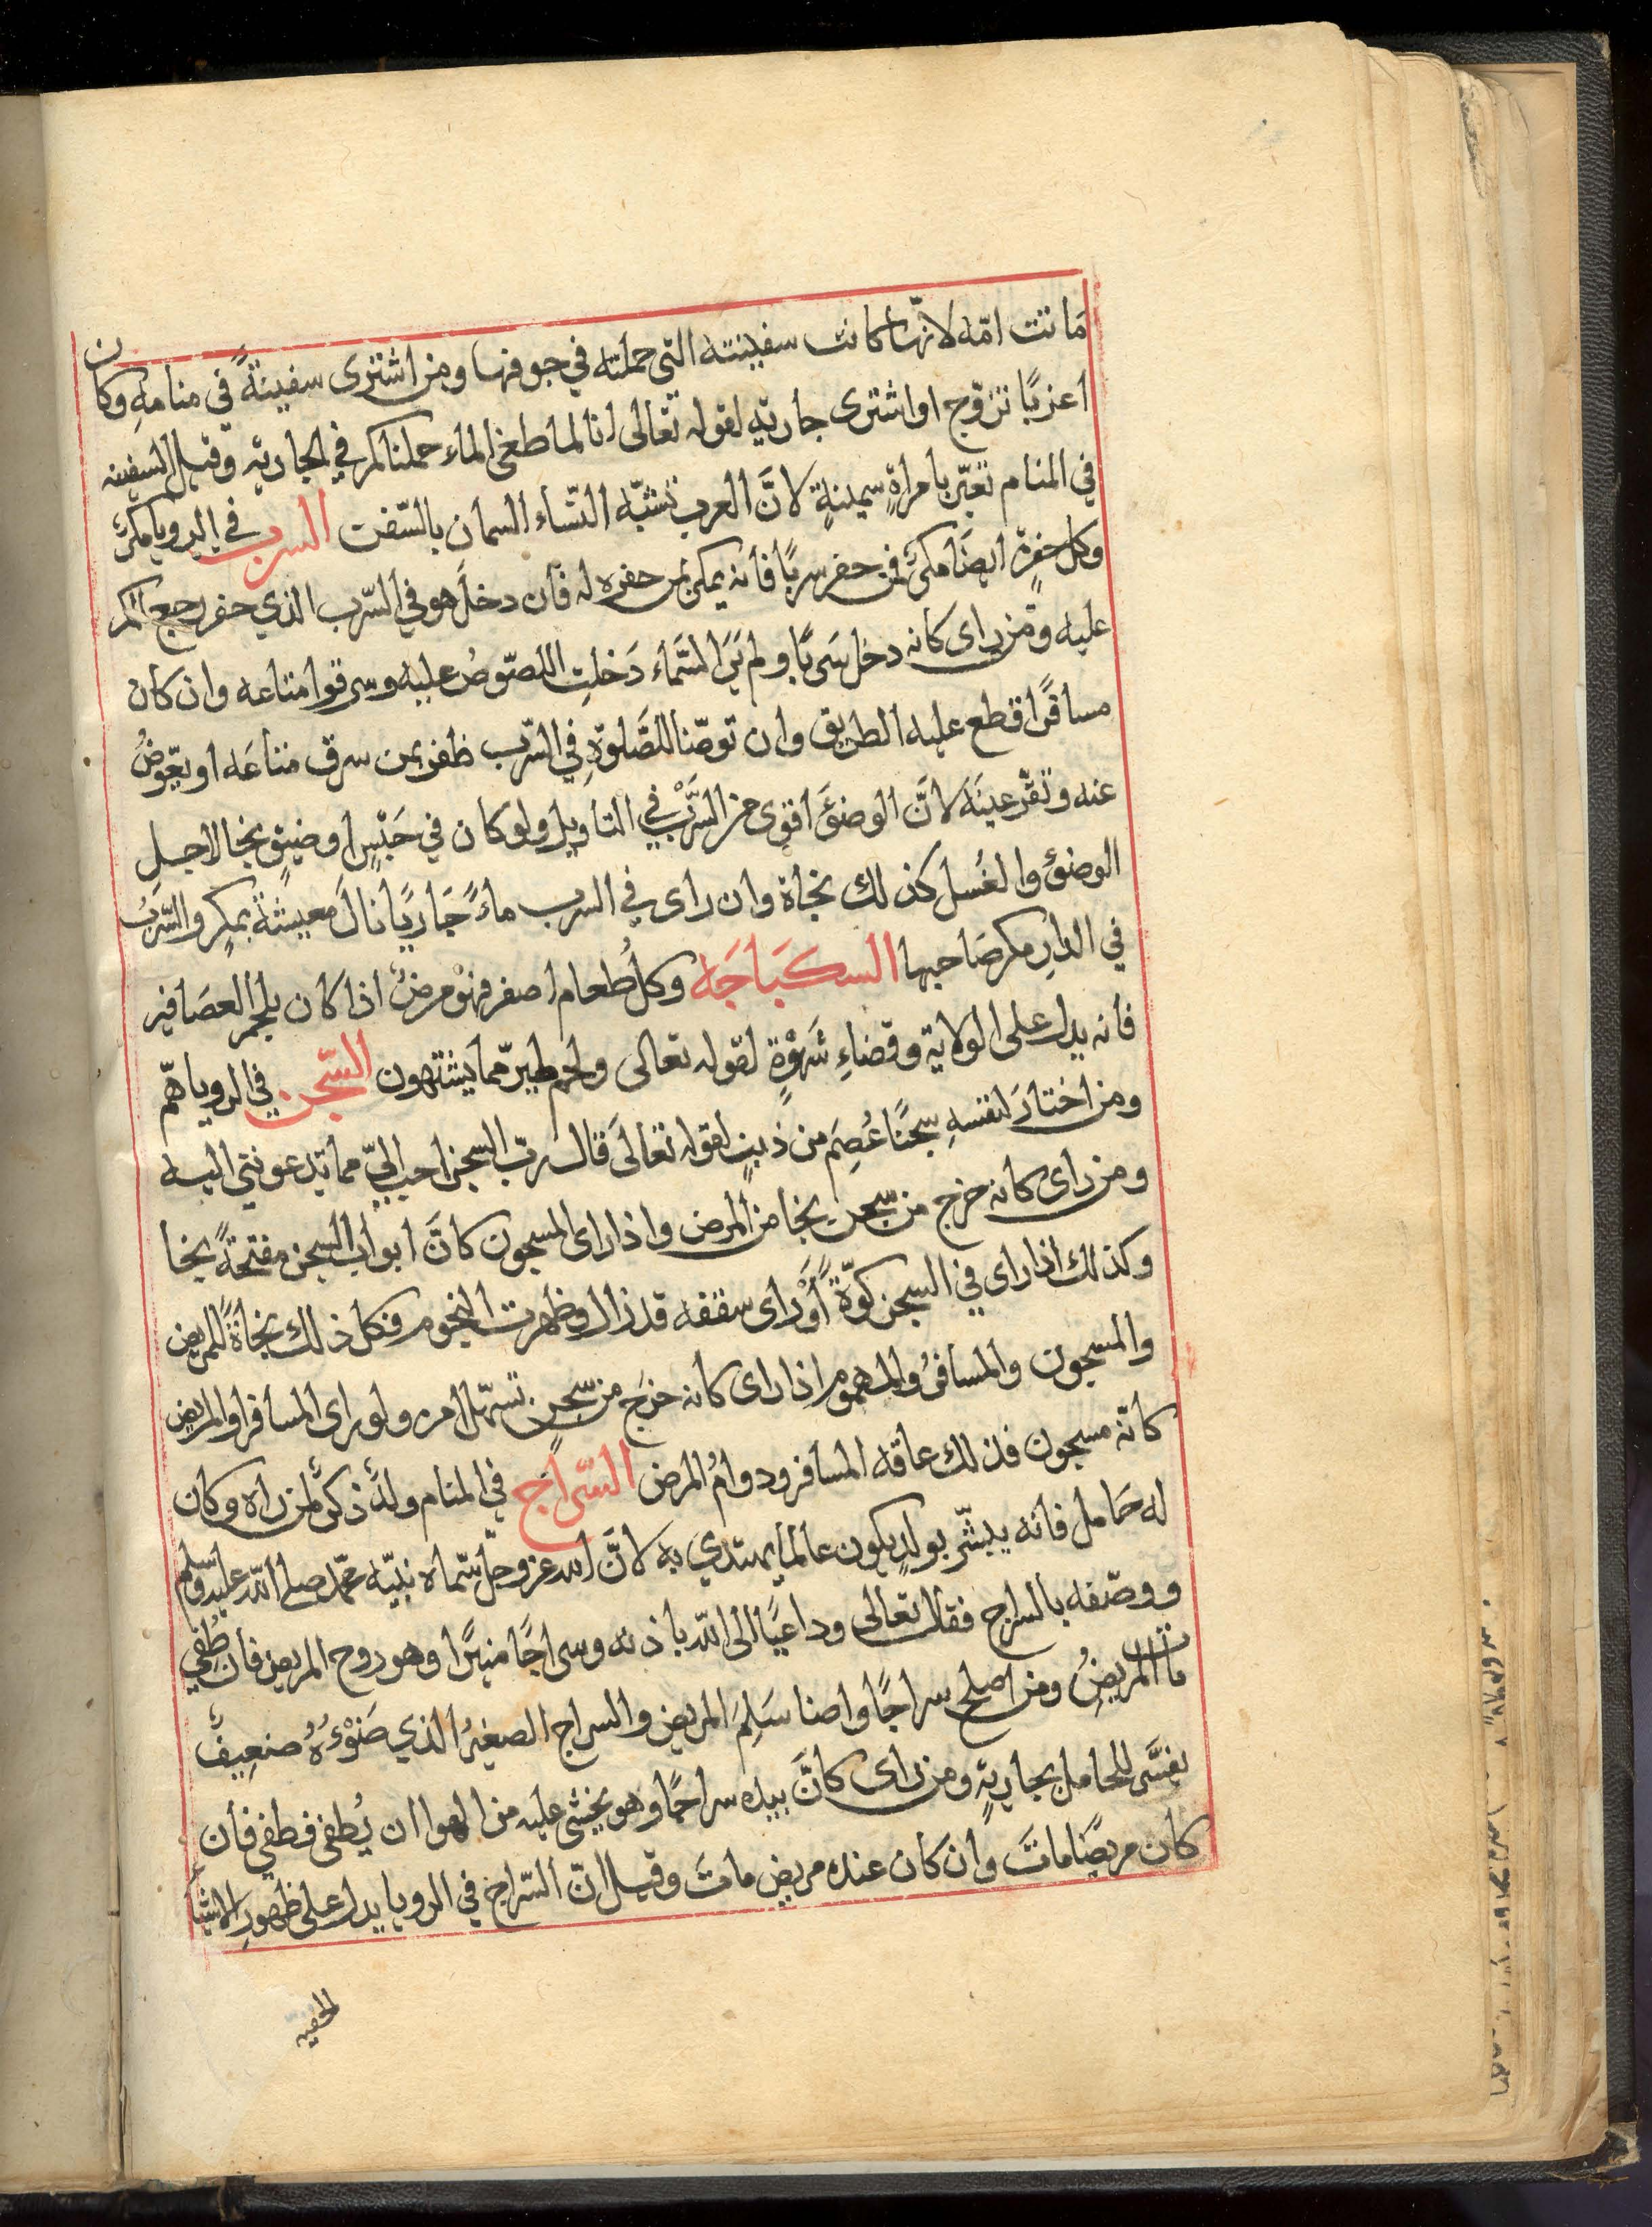 ماتت امّه لانّها كانت سفينته التى حملته في جوفها ومن اشترى سفينةً في منامه وكان
اعزبًا تزوّج او اشترى جارية لقوله تعالى انا لما طغى الماء حملناكم في الجارية وقيل السفينه
في المنام تعبّر بامراةٍ سمينةٍ لانَّ العرب تشبّه النسّاء السمان بالسّفن السرب في الرويا مكرٌ
وكل حفرٍ ايضًا مكرٌ فمن حفر سربًا فانه يمكر بمن حفره له فان دخل هو في السّرب الذي حفر رجع المكر
عليه ومن راى كانه دخل سَربًا ولم يَرَ السَّماء دَخلتِ اللصّوصُ عليه وسرقوا متاعه وان كان
مسافرًا قطع عليه الطريق وان توضّا للصَّلوةِ في السّرب ظفر بمن سرق متاعَه او يعّوضُ
عنه وتقّر عينَه لانَّ الوضؤَ اقوى من السَّرْب في التاويل ولو كان في حَبْسٍ او ضيقٍ نجا لاجل
الوضؤ والغُسل كذلك نجاة وان راى في السرب ماءً جَاريًا نالَ معيشةً بمكرٍ والسّرَبُ
في الدارِ مكر صَاحبها السكبَاجَه وكلُ طعام اصفر فهوْ مرضٌ اذا كان بلحم العصَافير
فانه يدل على الولاية وقضاءِ شَهْوْةٍ لقوله تعالى ولحم طير ممّا يشتهون السّجن في الرويا همّ
ومن اختارَ لنفسهِ سجنًا عُصِم من ذنبٍ لقوله تعالى قال ربّ السجن احب اليّ مما يدعونني اليه
ومن راى كانه خرج من سّجن نجا من المرض واذا راى المسجون كانَّ ابواب السجن مفتحةً نجا
وكذلك اذا راى في السجن كوّةً اوْ راى سقفه قد زال وظهرت النجوم فكل ذلك نجاةً للمريض
والمسجون والمسافرُ والمهموم اذا راى كانه خرَج من سّجنٍ تسهّل امره ولو راى المسافر او المريض
كانّه مسجون فذلك عاقه المسافر ودوامُ المرض السّراج في المنام ولدٌ ذكرٌ لمن راه وكان
له حَامل فانه يبشّر بولدٍ يكون عالمًا يهتدي به لانَّ الله عز وجلّ سّماه نبيّه محّمد صلى اللّه عليه وسلم
ووصّفه بالسراج فقال تعالى وداعيًا الى اللّه باذنه وسراجًا منيرًا وهو روح المريض فان طُفي
مات المريضُ ومن اصلح سراجًا واضا سَلِمَ المريض والسراج الصغيرُ الذي ضَوْءُهُ ضعِيفٌ
يفسَّر للحامل بجاريةٍ ومن راى كانَّ بيده سراجًا وهو يخشى عليه من الهوا ان يُطفى فطفي فان
كان مريضًا ماتَ وان كان عنده مريض ماتَ وقيل انّ السّراج في الرويا يدل على ظهورِ الاشيا
الخفيه